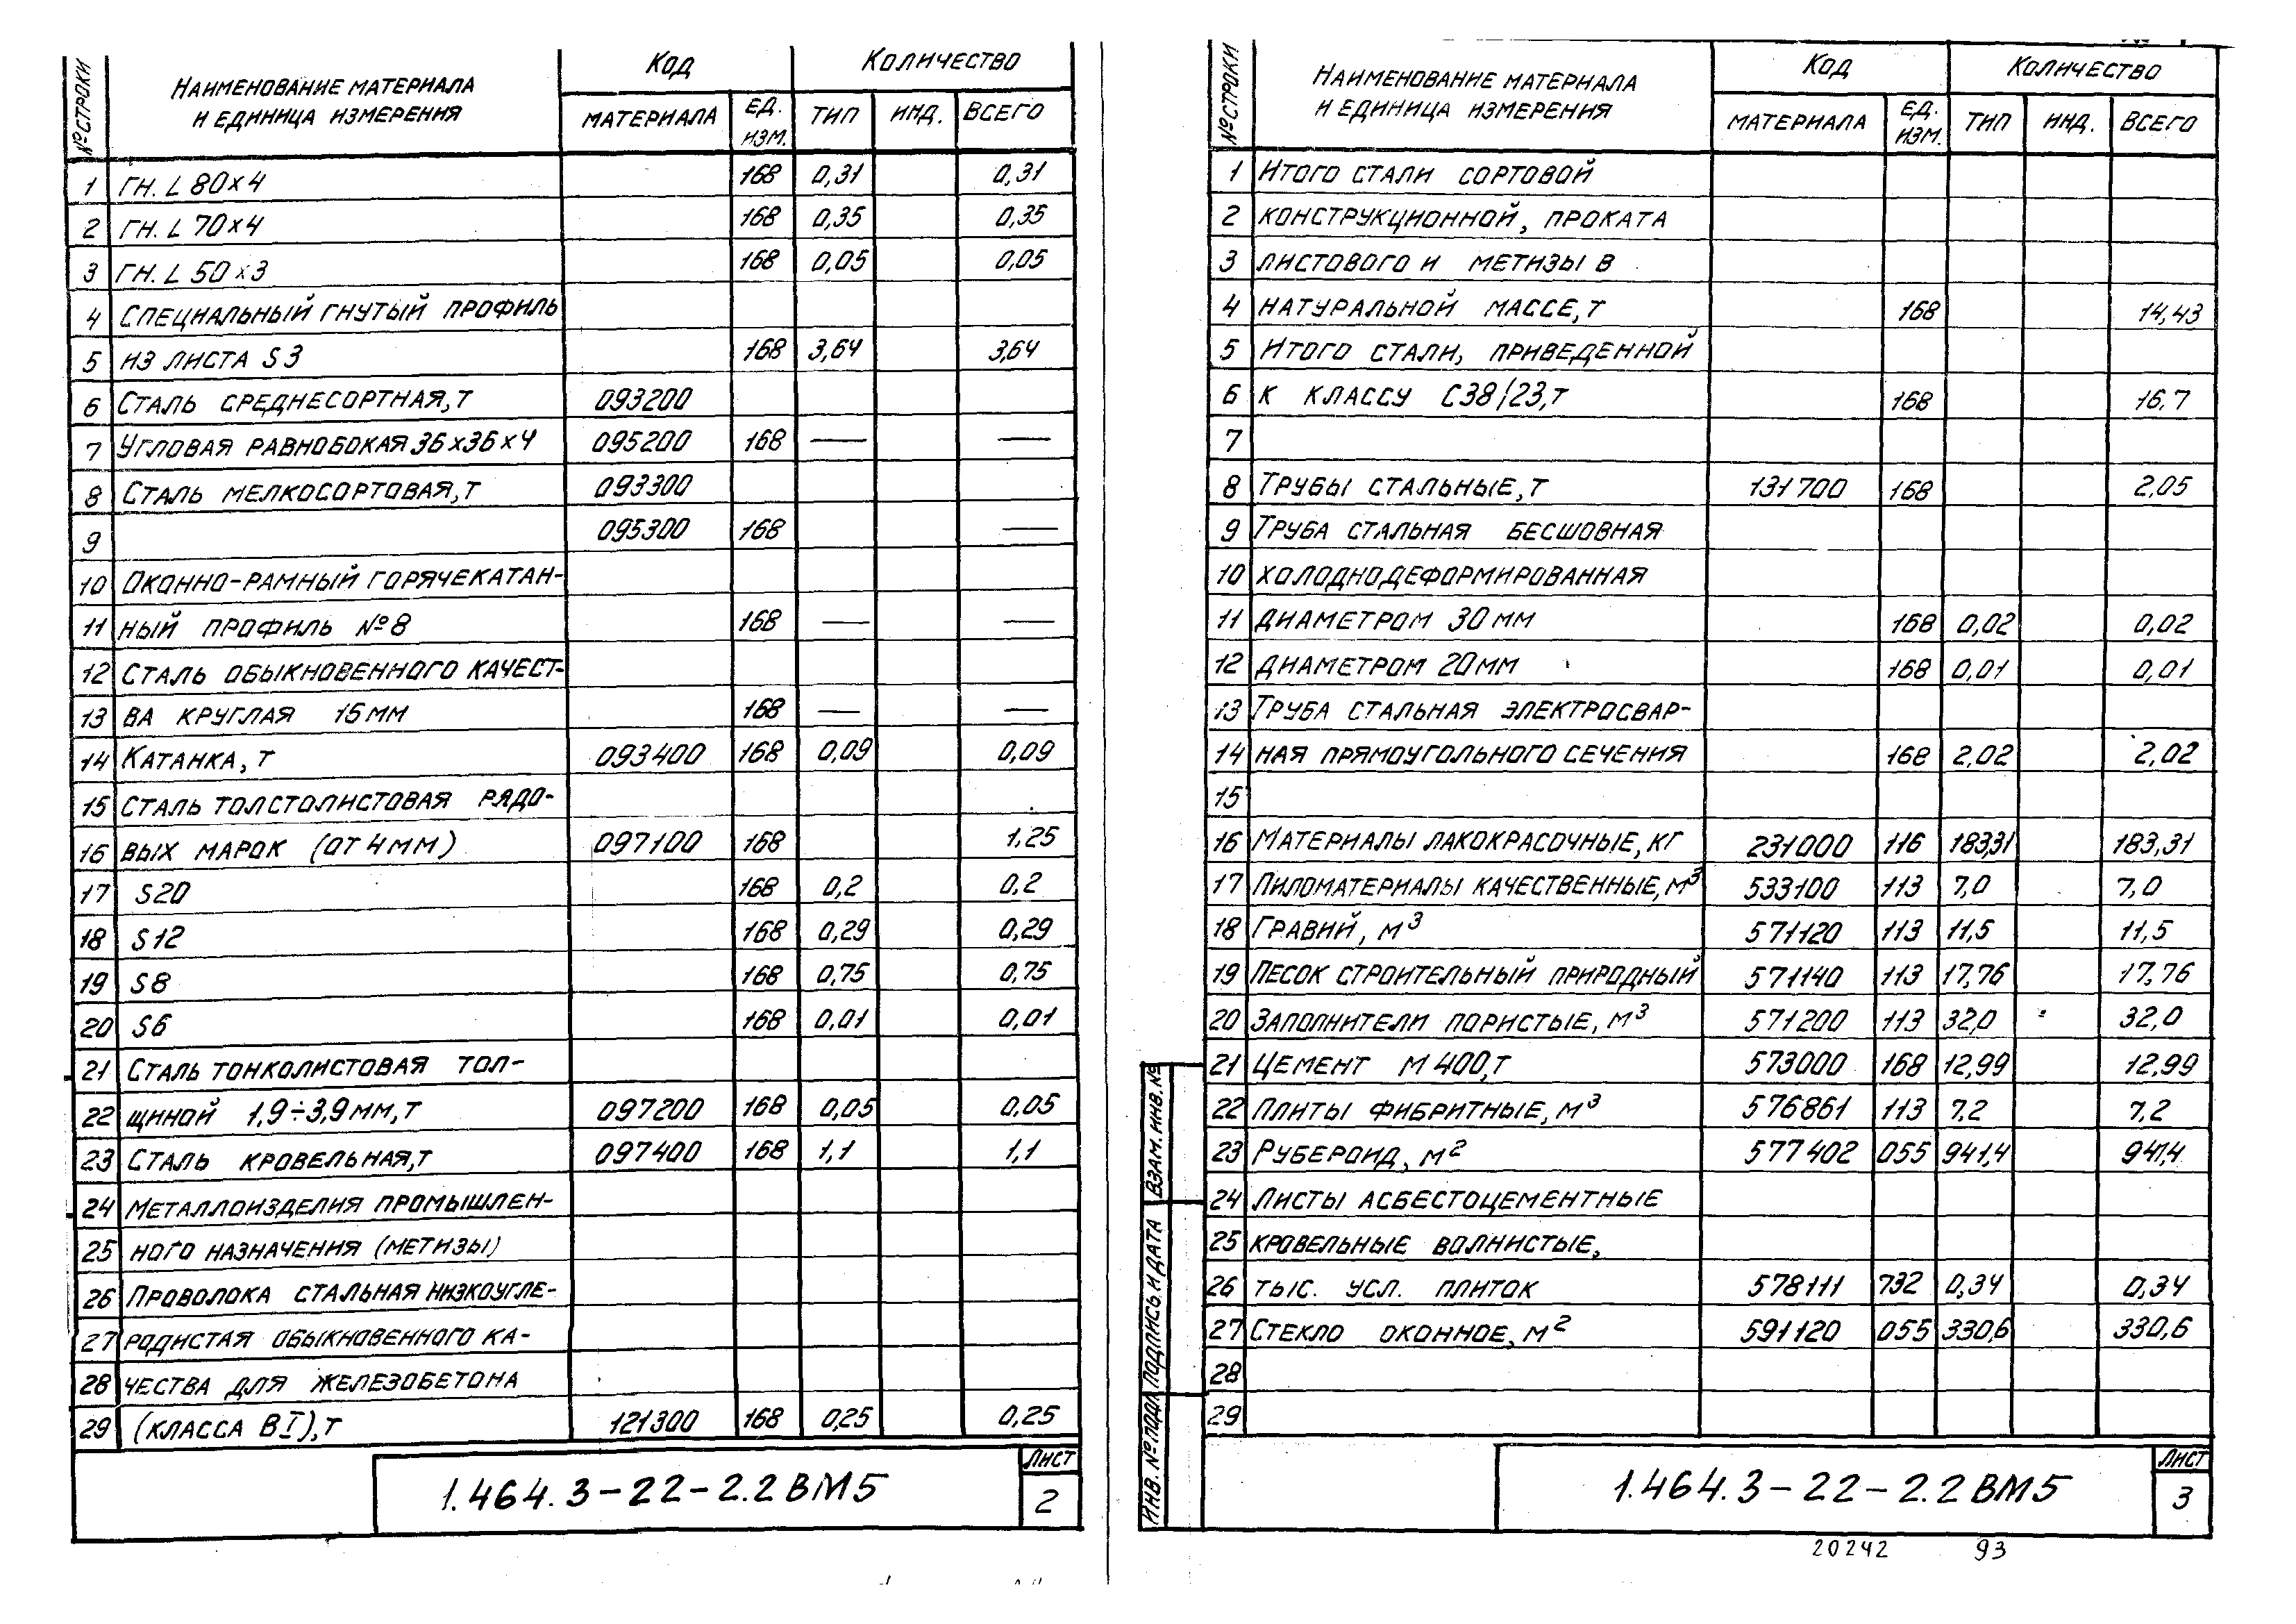 № строки | Наименование материала и единица измерения | Код | Количество
материала | ед. изм. | тип | инд. | всего
1 гн. L 80×4 168 0,31 0,31
2 гн. L 70×4 168 0,35 0,35
3 гн. L 50×3 168 0,05 0,05
4 Специальный гнутый профиль
5 из листа S3 168 3,64 3,64
6 Сталь среднесортная, т 093200
7 Угловая равнобокая 36×36×4 095200 168 — —
8 Сталь мелкосортовая, т 093300
9 095300 168 —
10 Оконно-рамный горячекатан-
11 ный профиль №8 168 — —
12 Сталь обыкновенного качест-
13 ва круглая 15 мм 168 — —
14 Катанка, т 093400 168 0,09 0,09
15 Сталь толстолистовая рядо-
16 вых марок (от 4 мм) 097100 168 1,25
17 S20 168 0,2 0,2
18 S12 168 0,29 0,29
19 S8 168 0,75 0,75
20 S6 168 0,01 0,01
21 Сталь тонколистовая тол-
22 щиной 1,9÷3,9 мм, т 097200 168 0,05 0,05
23 Сталь кровельная, т 097400 168 1,1 1,1
24 Металлоизделия промышлен-
25 ного назначения (метизы)
26 Проволока стальная низкоугле-
27 родистая обыкновенного ка-
28 чества для железобетона
29 (класса ВI), т 121300 168 0,25 0,25
1.464.3-22-2.2 ВМ5
Лист
2
№ строки | Наименование материала и единица измерения | Код | Количество
материала | ед. изм. | тип | инд. | всего
1 Итого стали сортовой
2 конструкционной, проката
3 листового и метизы в
4 натуральной массе, т 168 14,43
5 Итого стали, приведенной
6 к классу С38/23, т 168 16,7
7
8 Трубы стальные, т 131700 168 2,05
9 Труба стальная бесшовная
10 холоднодеформированная
11 диаметром 30 мм 168 0,02 0,02
12 диаметром 20 мм 168 0,01 0,01
13 Труба стальная электросвар-
14 ная прямоугольного сечения 168 2,02 2,02
15
16 Материалы лакокрасочные, кг 231000 116 183,31 183,31
17 Пиломатериалы качественные, м³ 533100 113 7,0 7,0
18 Гравий, м³ 571120 113 11,5 11,5
19 Песок строительный природный 571140 113 17,76 17,76
20 Заполнители пористые, м³ 571200 113 32,0 32,0
21 Цемент М 400, т 573000 168 12,99 12,99
22 Плиты фибритные, м³ 576861 113 7,2 7,2
23 Рубероид, м² 577402 055 941,4 941,4
24 Листы асбестоцементные
25 кровельные волнистые,
26 тыс. усл. плиток 578111 732 0,34 0,34
27 Стекло оконное, м² 591120 055 330,6 330,6
28
29
Взам. инв. №
Подпись и дата
Инв. № подл.
1.464.3-22-2.2 ВМ5
Лист
3
20242 93